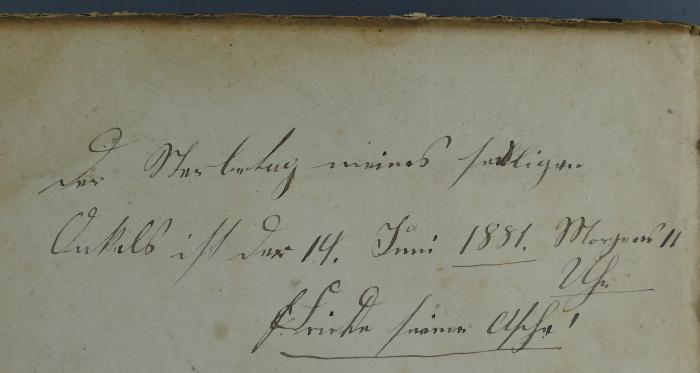 Der Sterbetag meines seeligen
Onkels ist der 14. Juni 1881. Morgens 11
Uhr
Friede seiner Asche!